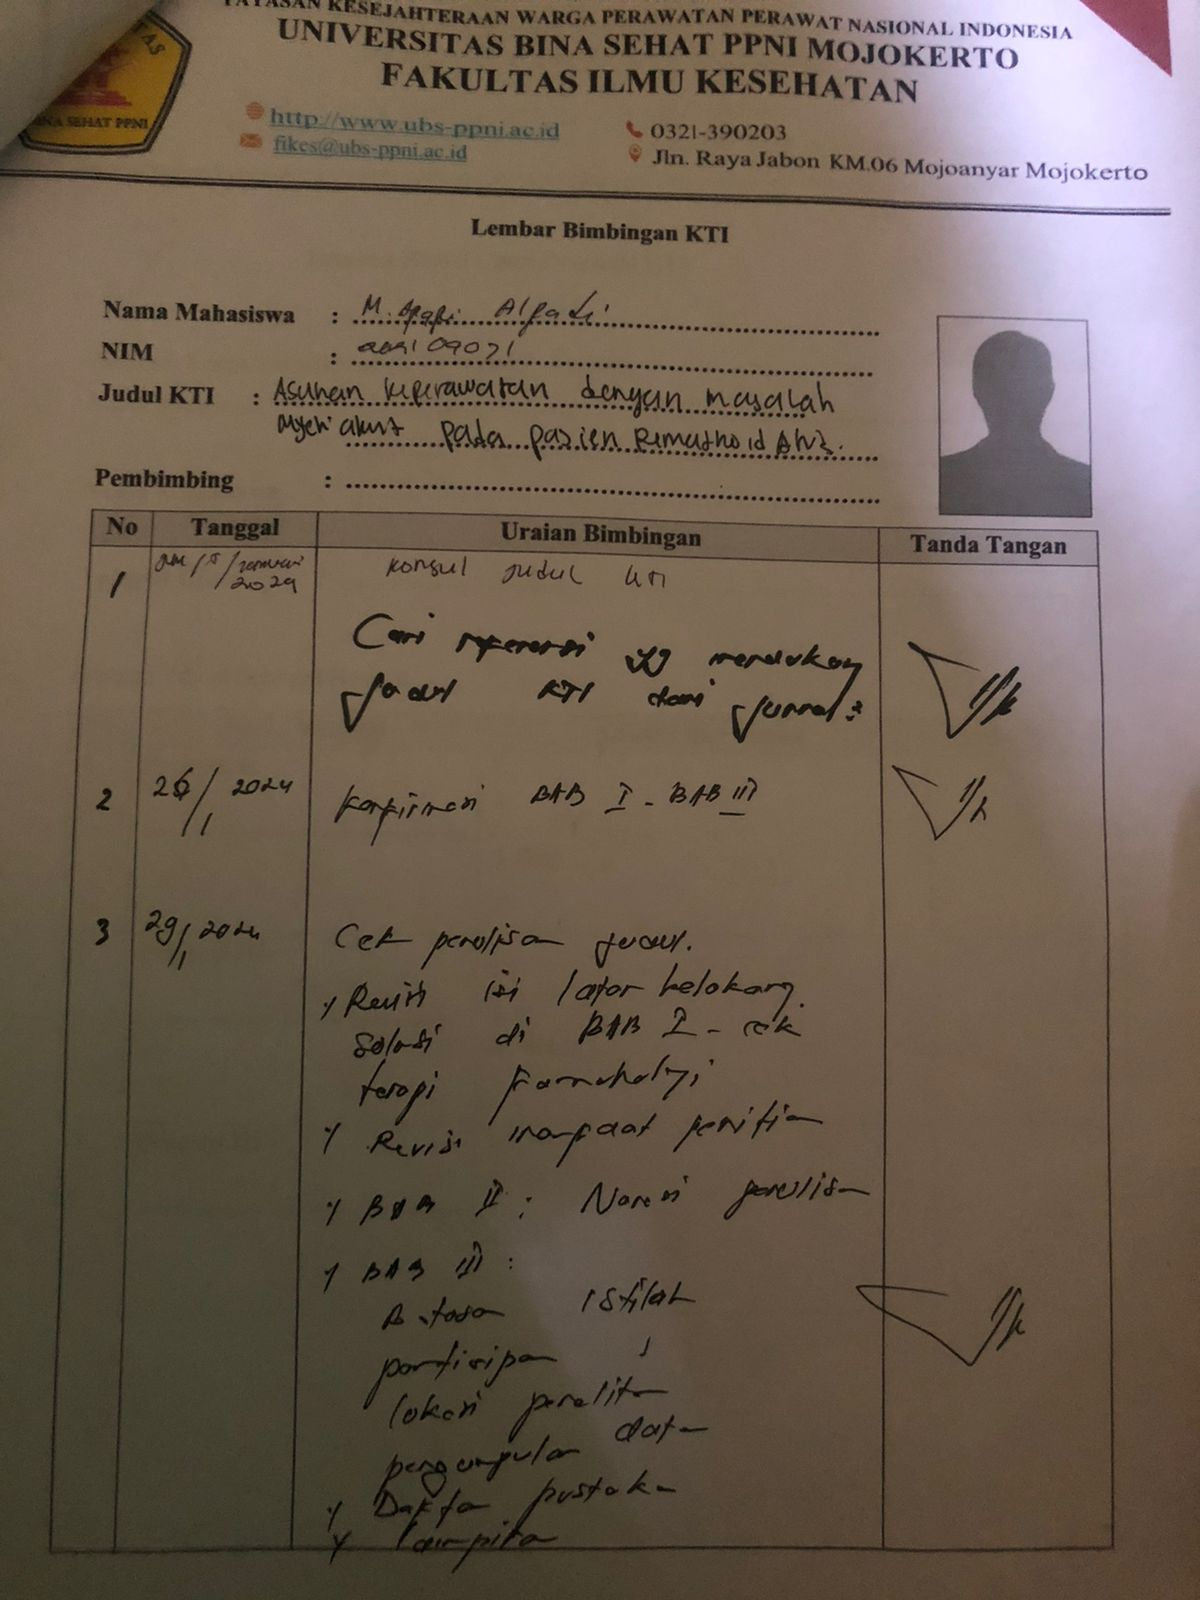 YAYASAN KESEJAHTERAAN WARGA PERAWATAN PERAWAT NASIONAL INDONESIA
UNIVERSITAS BINA SEHAT PPNI MOJOKERTO
FAKULTAS ILMU KESEHATAN
BINA SEHAT PPNI
http://www.ubs-ppni.ac.id
0321-390203
fikes@ubs-ppni.ac.id
Jln. Raya Jabon KM.06 Mojoanyar Mojokerto
Lembar Bimbingan KTI
Nama Mahasiswa : M.
NIM :
Judul KTI : Asuhan keperawatan dengan masalah
nyeri akut pada pasien Remathoid
Pembimbing :
No Tanggal Uraian Bimbingan Tanda Tangan
1 Januari 2024 Konsul judul KTI
Cari referensi yg mendukung
judul KTI dari jurnal
2 26/1 2024 Konfirmasi BAB I - BAB III
3 29/1 2024 Cek penulisan judul.
Revisi isi latar belakang
solusi di BAB I - cek
terapi
Revisi manfaat
BAB II : Narasi penulisan
BAB III :
Batasan istilah
partisipan
lokasi penelitian
pengumpulan data
Daftar pustaka
Lampiran